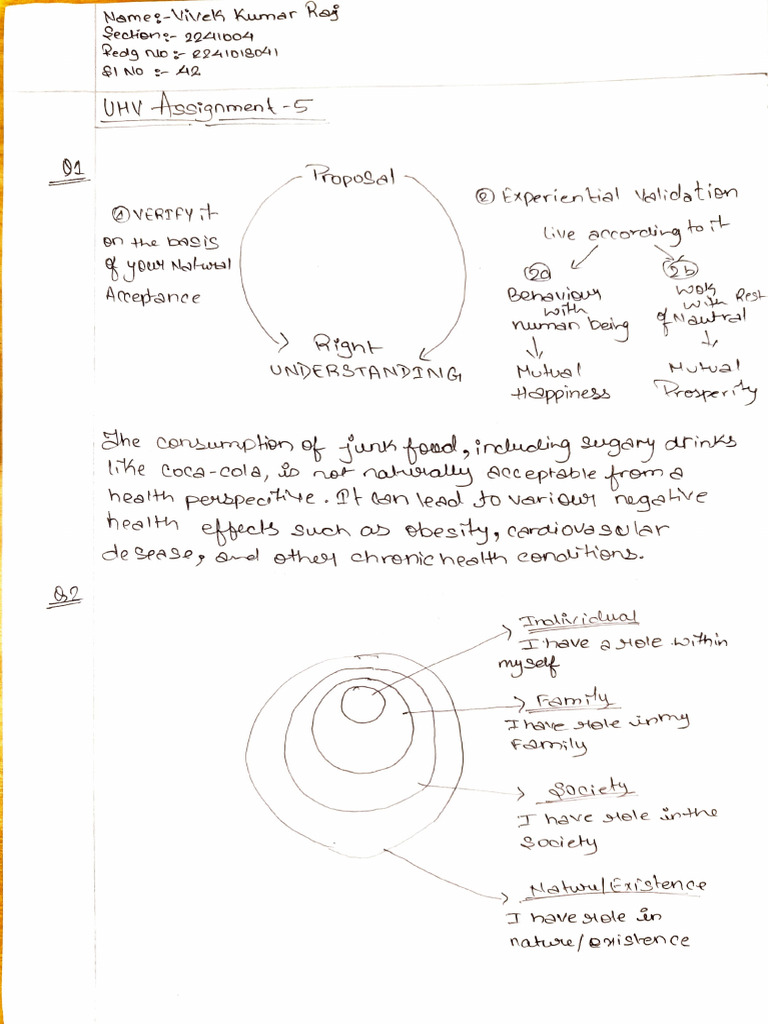 Name:- Vivek Kumar Raj
Section:- 2241004
Redg No:- 2241018041
Sl No :- 42
UHV Assignment - 5
Q1
Proposal
① VERIFY it
on the basis
of your Natural
Acceptance
Right
UNDERSTANDING
② Experiential Validation
live according to it
2a
Behaviour
with
human being
Mutual
Happiness
2b
Wok
with Rest
of Nautral
Mutual
Prosperity
The consumption of junk food, including sugary drinks
like coca-cola, is not naturally acceptable from a
health perspecitive. It can lead to variour negative
health effects such as obesity, cardiovascular
desease, and other chronic health conditions.
Q2
Individual
I have a role within
myself
Family
I have role in my
Family
Society
I have role in the
Society
Nature/Existence
I have role in
nature/existence